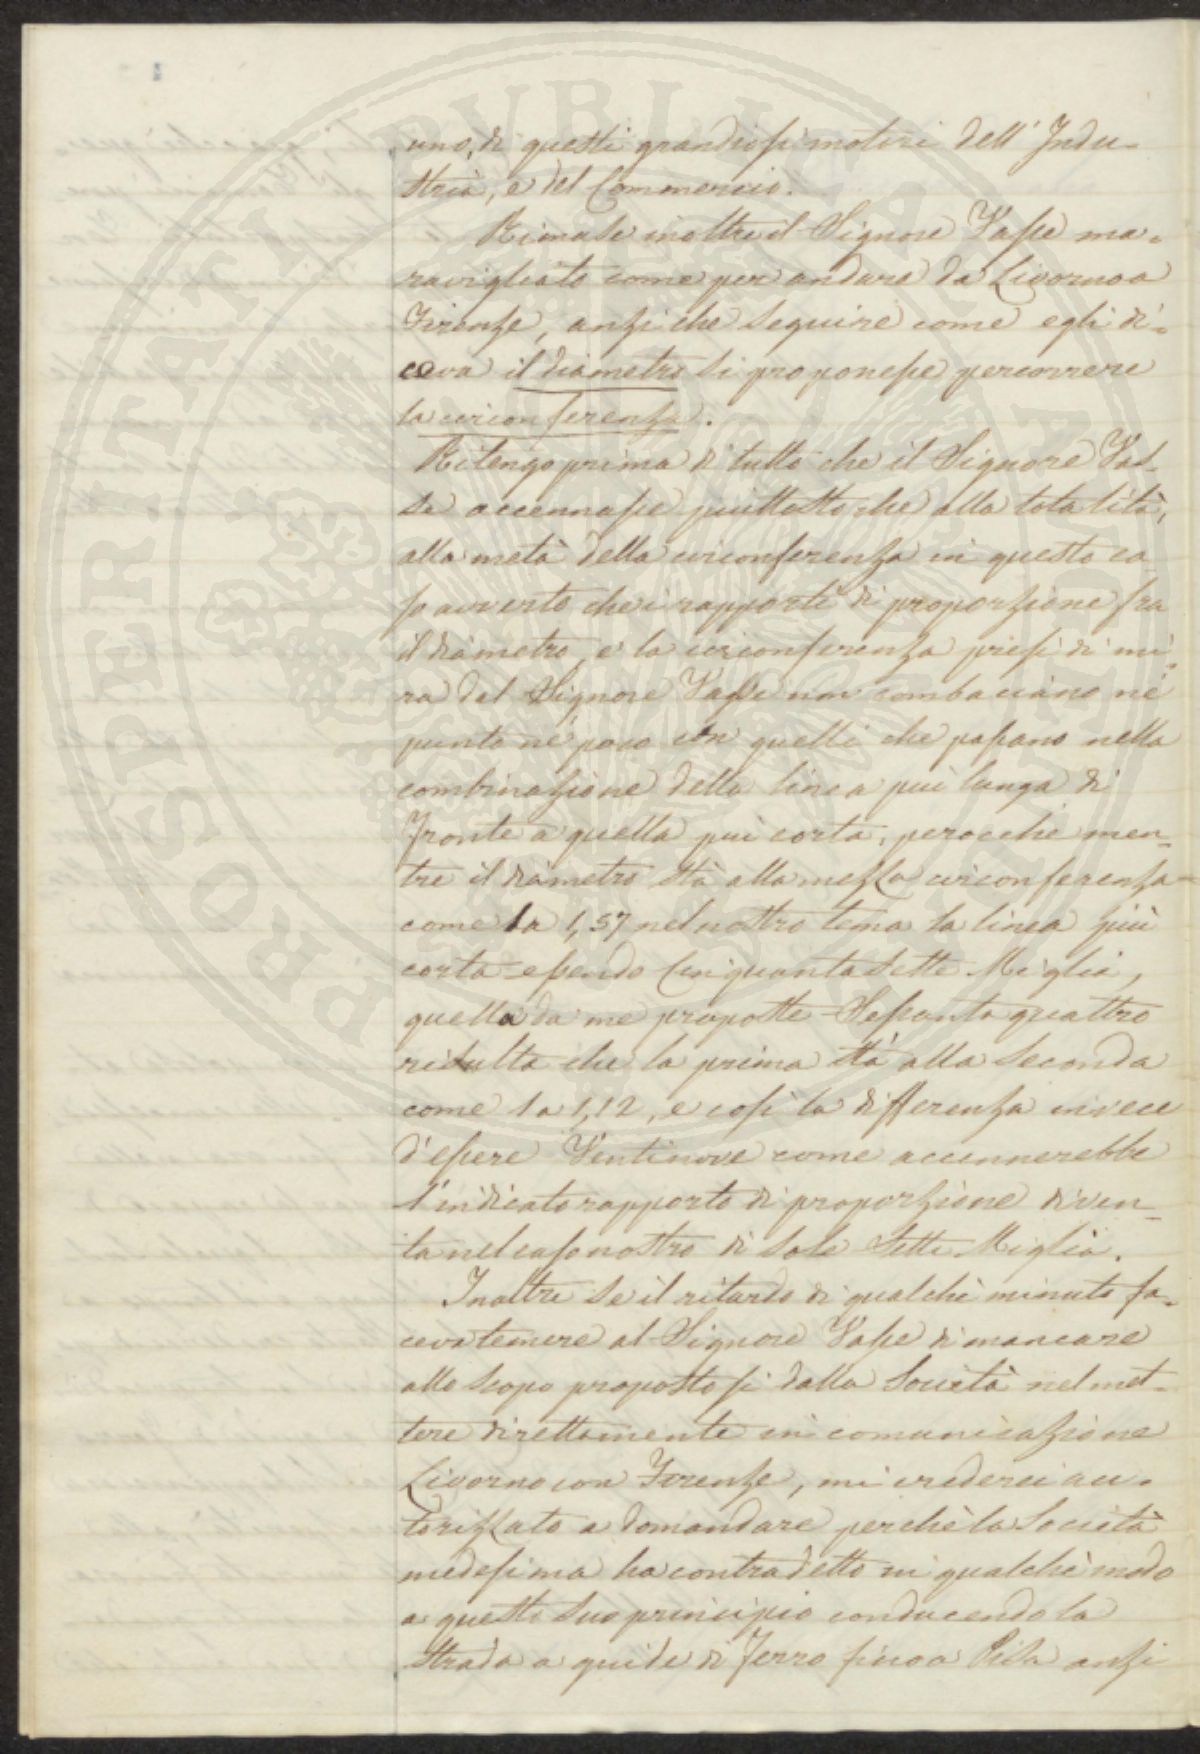 uno, di questi grandiosi motori dell'Indu-
stria, e del Commercio.
Rimase inoltre il Signore Vasse ma-
ravigliato come per andare da Livorno a
Firenze, anzi che seguire come egli di-
ceva il diametro si proponesse percorrere
la circonferenza.
Ritengo prima di tutto che il Signore Vas-
se accennasse piuttosto che alla totalità,
alla metà della circonferenza in questo ca-
so avverto che i rapporti di proporzione fra
il diametro, e la circonferenza presi di mi-
ra dal Signore Vasse non combaciano nè
punto nè poco con quelli che passano nella
combinazione della linea più lunga di
fronte a quella più corta, perocchè men-
tre il diametro stà alla mezza circonferenza
come 1 a 1,57 nel nostro tema la linea più
corta essendo Cinquantasette Miglia,
quella da me proposta Sessanta quattro
risulta che la prima stà alla seconda
come 1 a 1,12, e così la differenza invece
d'essere Ventinove come accennerebbe
l'indicato rapporto di proporzione diven-
ta nel caso nostro di sole Sette Miglia.
Inoltre se il ritardo di qualche minuto fa-
ceva temere al Signore Vasse di mancare
allo scopo propostosi dalla Società nel met-
tere direttamente in comunicazione
Livorno con Firenze, mi crederei au-
torizzato a domandare perchè la Società
medesima ha contradetto in qualche modo
a questo suo principio conducendo la
Strada a guide di Ferro fino a Pisa anzi
PROSPERITATI PVBLICAE AVGENDAE